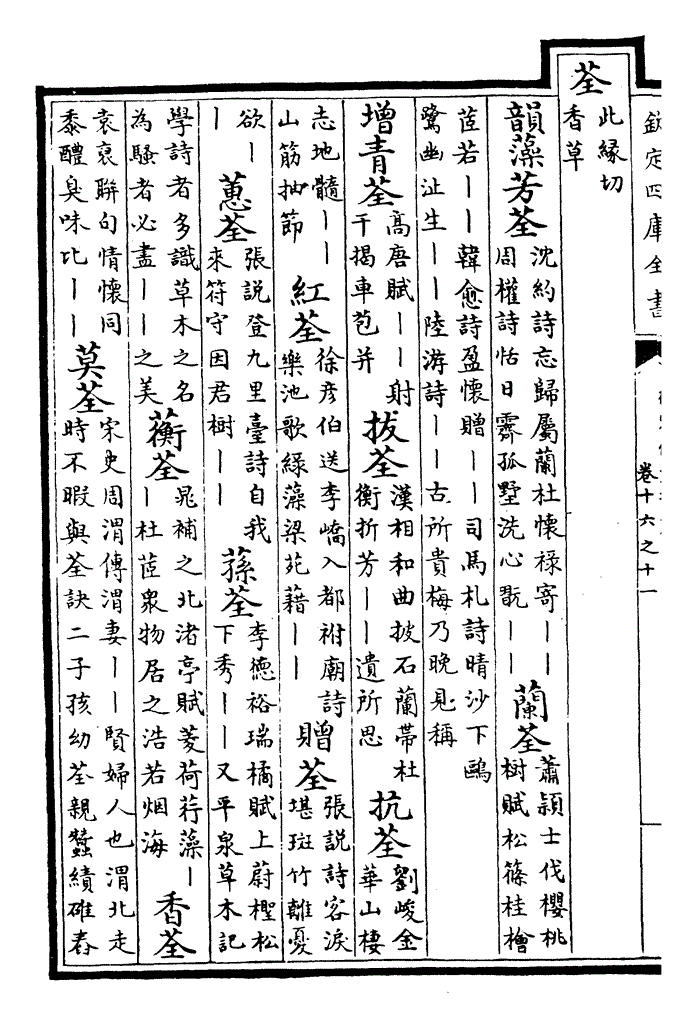 欽定四庫全書
卷十六之十一
荃
此縁切
香草
韻藻芳荃
沈約詩忘歸屬蘭杜懷禄寄——
周權詩恬日霽孤墅洗心翫——
蘭荃
蕭頴士伐櫻桃
樹賦松篠桂檜
茝若——韓愈詩盈懷贈——司馬札詩晴沙下鷗
鷺幽沚生——陸游詩——古所貴梅乃晚見稱
增青荃
高唐賦——射
干揭車苞并
拔荃
漢相和曲披石蘭帶杜
衡折芳——遺所思
抗荃
劉峻金
華山棲
志地髓——
山筋抽節
紅荃
徐彦伯送李嶠入都祔廟詩
樂池歌緑藻梁苑藉——
贈荃
張說詩客淚
堪斑竹離憂
欲—
—
蕙荃
張說登九里臺詩自我
來符守因君樹——
蓀荃
李德裕瑞橘賦上蔚樫松
下秀——又平泉草木記
學詩者多識草木之名
為騷者必盡——之美
蘅荃
晁補之北渚亭賦菱荷荇藻—
—杜茝衆物居之浩若烟海
香荃
袁裒聨句情懷同
黍醴臭味比——
莫荃
宋史周渭傳渭妻——賢婦人也渭北走
時不暇與荃訣二子孩幼荃親蠶績碓舂